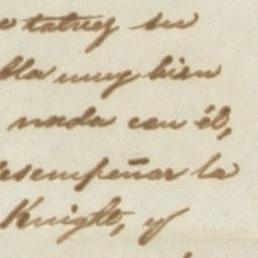 su
bla muy bien
nada con él,
desempeñar la
Knight, y